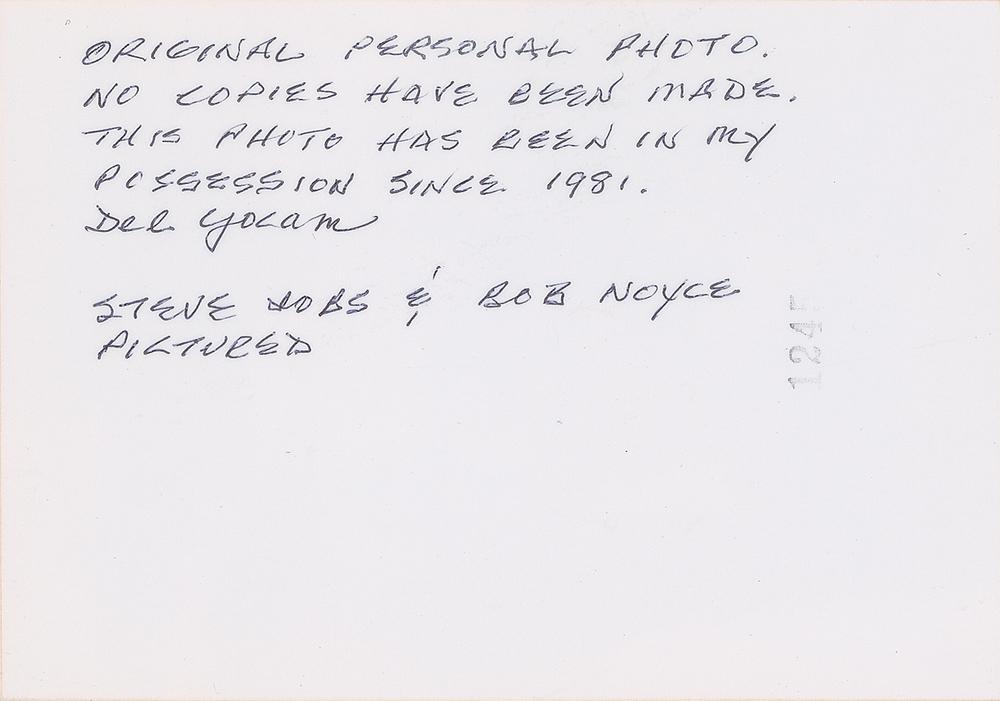 ORIGINAL PERSONAL PHOTO.
NO COPIES HAVE BEEN MADE.
THIS PHOTO HAS BEEN IN MY
POSSESSION SINCE 1981.
Del Yocam
STEVE JOBS & BOB NOYCE
PICTURED
124